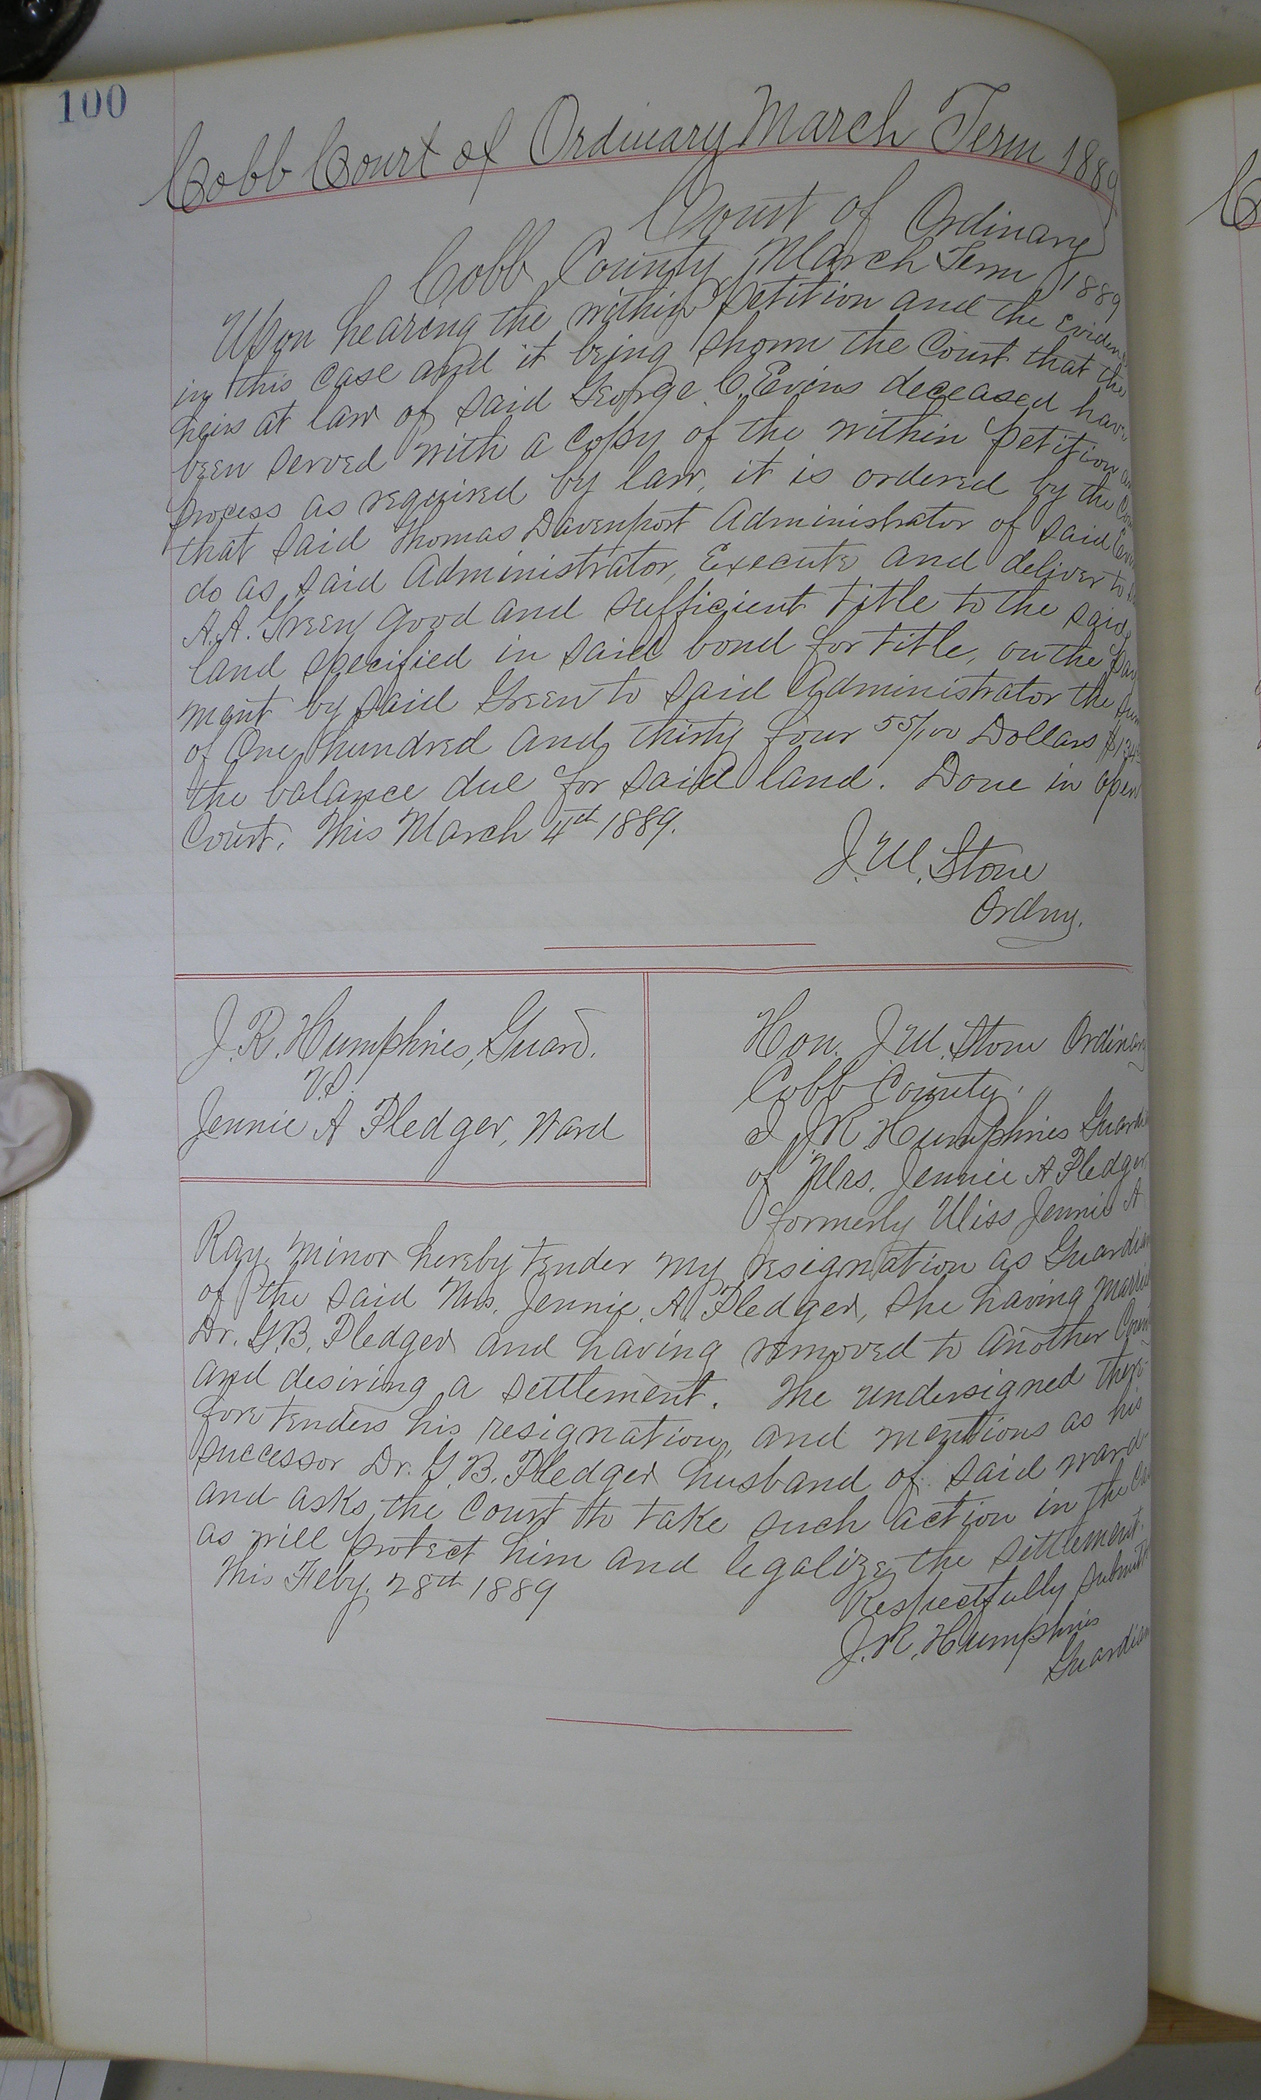 100
Cobb Court of Ordinary March Term 1889
Court of Ordinary
Cobb County March Term 1889
Upon hearing the within petition and the Eviden
in this case and it being shown the Court that the
heirs at law of said George C. Evins deceased have
been served with a copy of the within petition
process as required by law, it is ordered by the
that said Thomas Davenport Administrator of said
do as said Administrator, Execute and deliver to
A.A. Green good and sufficient title to the said
land specified in said bond for title, on the pay
ment by said Green to said Administrator the sum
of One hundred and thirty four 55/100 Dollars
the balance due for said land. Done in open
Court. This March 4th 1889.
J.W. Stone
Ordny.
J.R. Humphries, Guard.
VS.
Jennie A Pledger, Ward
Hon. J.W. Stone Ordinary
Cobb County.
I J R Humphries Guardian
of Mrs. Jennie A Pledger
formerly Miss Jennie A
Ray minor hereby tender my resignation as Guardian
of the said Mrs. Jennie A. Pledger, she having married
Dr. G.B. Pledger and having removed to another
and desiring a settlement. The undersigned there-
fore tenders his resignation, and mentions as his
successor Dr. G.B. Pledger husband of said ward
and asks the Court to take such action in the
as will protect him and legalize the settlement.
This Feby. 28th 1889
Respectfully submit
J.R. Humphries
Guardian